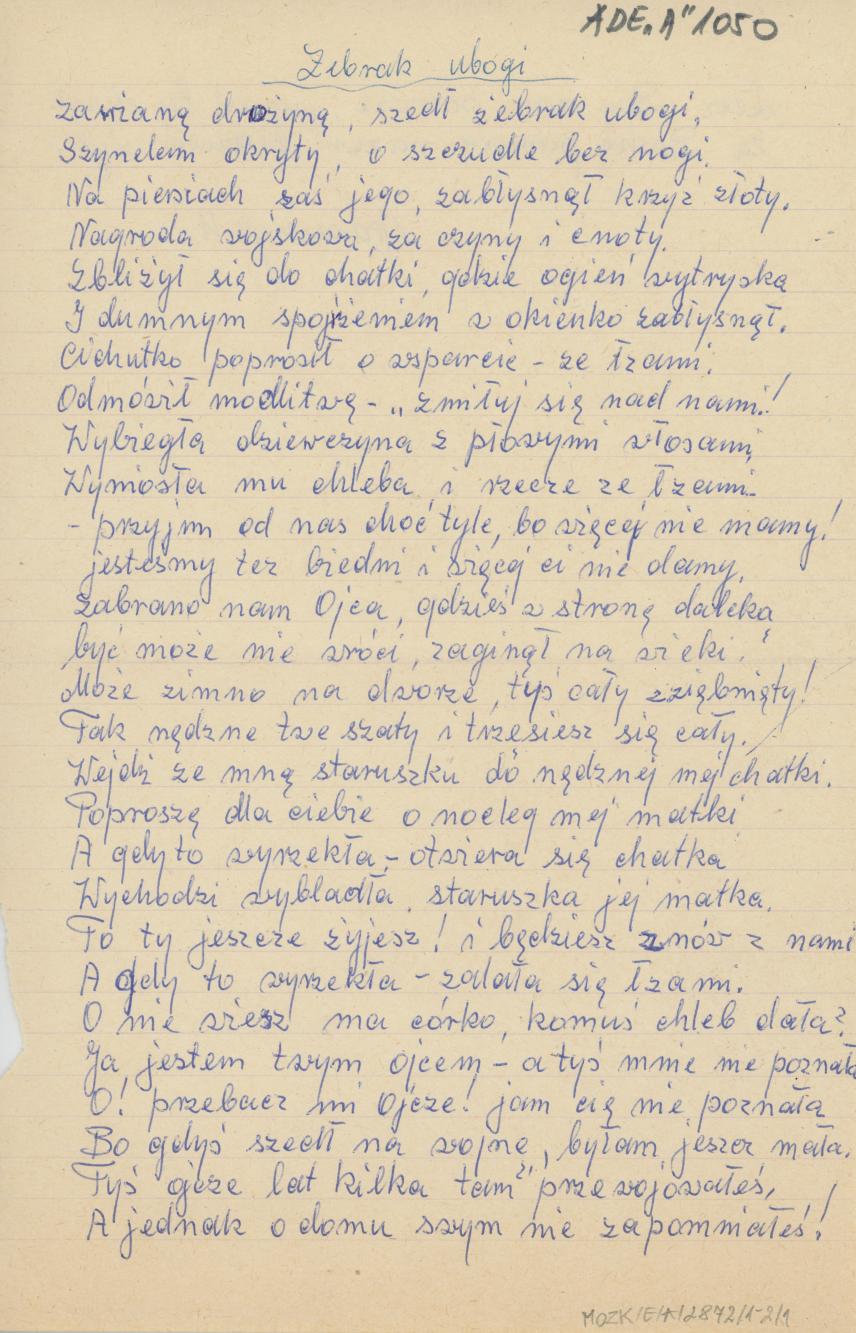 ADE„A" 1050
Żebrak ubogi
zawianą drożyną, szedł żebrak ubogi,
Szynelem okryty, o szczudle bez nogi.
Na piersiach zaś jego, zabłysnął krzyż złoty.
Nagroda wojskowa, za czyny i cnoty.
Zbliżył się do chatki, gdzie ogień wytryska
I dumnym spojrzeniem w okienko zabłysnął.
Cichutko poprosił o wsparcie – ze łzami.
Odmówił modlitwę – „zmiłuj się nad nami!
Wybiegła dziewczyna z płowymi włosami,
Wyniosła mu chleba, i rzecze ze łzami.
- przyjm od nas choć tyle, bo więcej nie mamy!
jesteśmy też biedni i więcej ci nie damy.
zabrano nam Ojca, gdzieś w stronę daleką
być może nie wróci, zaginął na wieki."
Może zimno na dworze, tyś cały zziębnięty!
Tak nędzne twe szaty i trzesiesz się cały.
Wejdź ze mną staruszku do nędznej mej chatki.
Poproszę dla ciebie o nocleg mej matki
A gdy to wyrzekła, – otwiera się chatka
Wychodzi wybladła, staruszka jej matka.
To ty jeszcze żyjesz! i będziesz znów z nami
A gdy to wyrzekła – zalała się łzami.
O nie wiesz ma córko, komuś chleb dała?
Ja jestem twym ojcem – a tyś mnie nie poznała
O! przebacz mi Ojcze! jam cię nie poznała
Bo gdyś szedł na wojnę, byłam jeszcz mała.
Tyś ojcze lat kilka tam przewojowałeś,
A jednak o domu swym nie zapomniałeś!
MOZK/E/A/2872/1-2/1